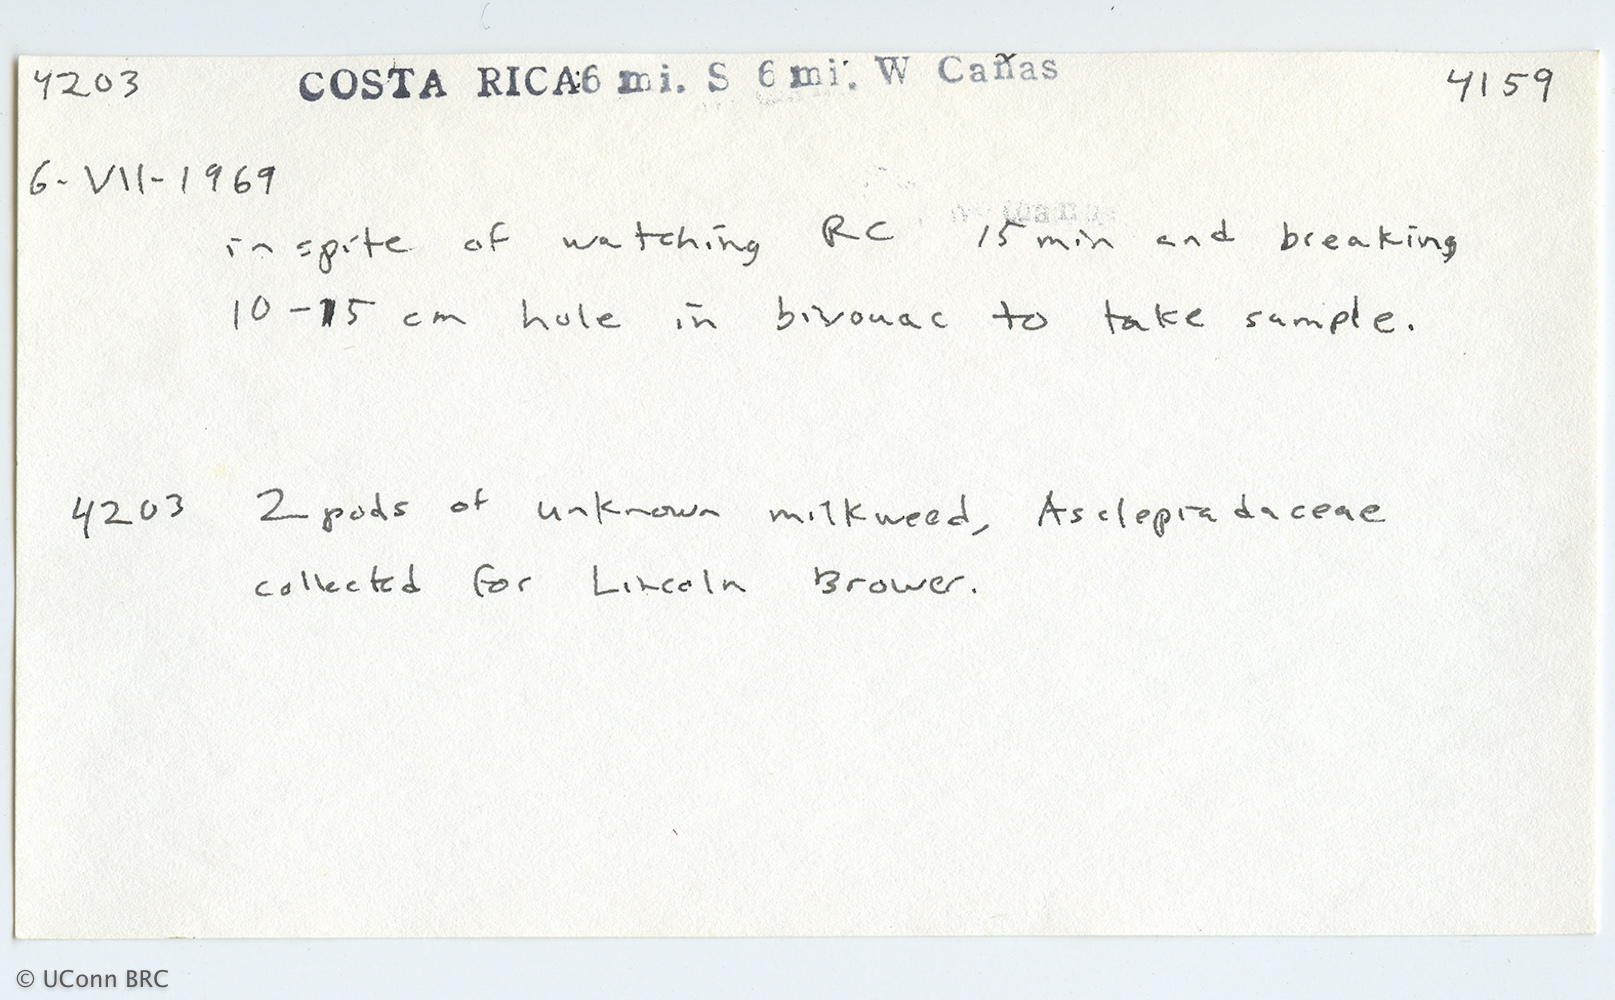 4203 COSTA RICA 6 mi. S 6 mi. W Cañas 4159
6-VII-1969
in spite of watching RC 15 min and breaking
10-15 cm hole in bivouac to take sample.
4203 2 pods of unknown milkweed, Asclepiadaceae
collected for Lincoln Brower.
© UConn BRC